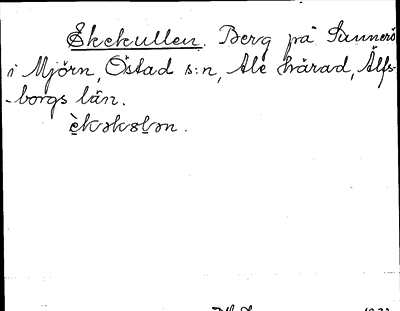 Ekekullen. Berg på Sunnerö
i Mjörn, Östad s:n, Ale härad, Älfs-
-borgs län.